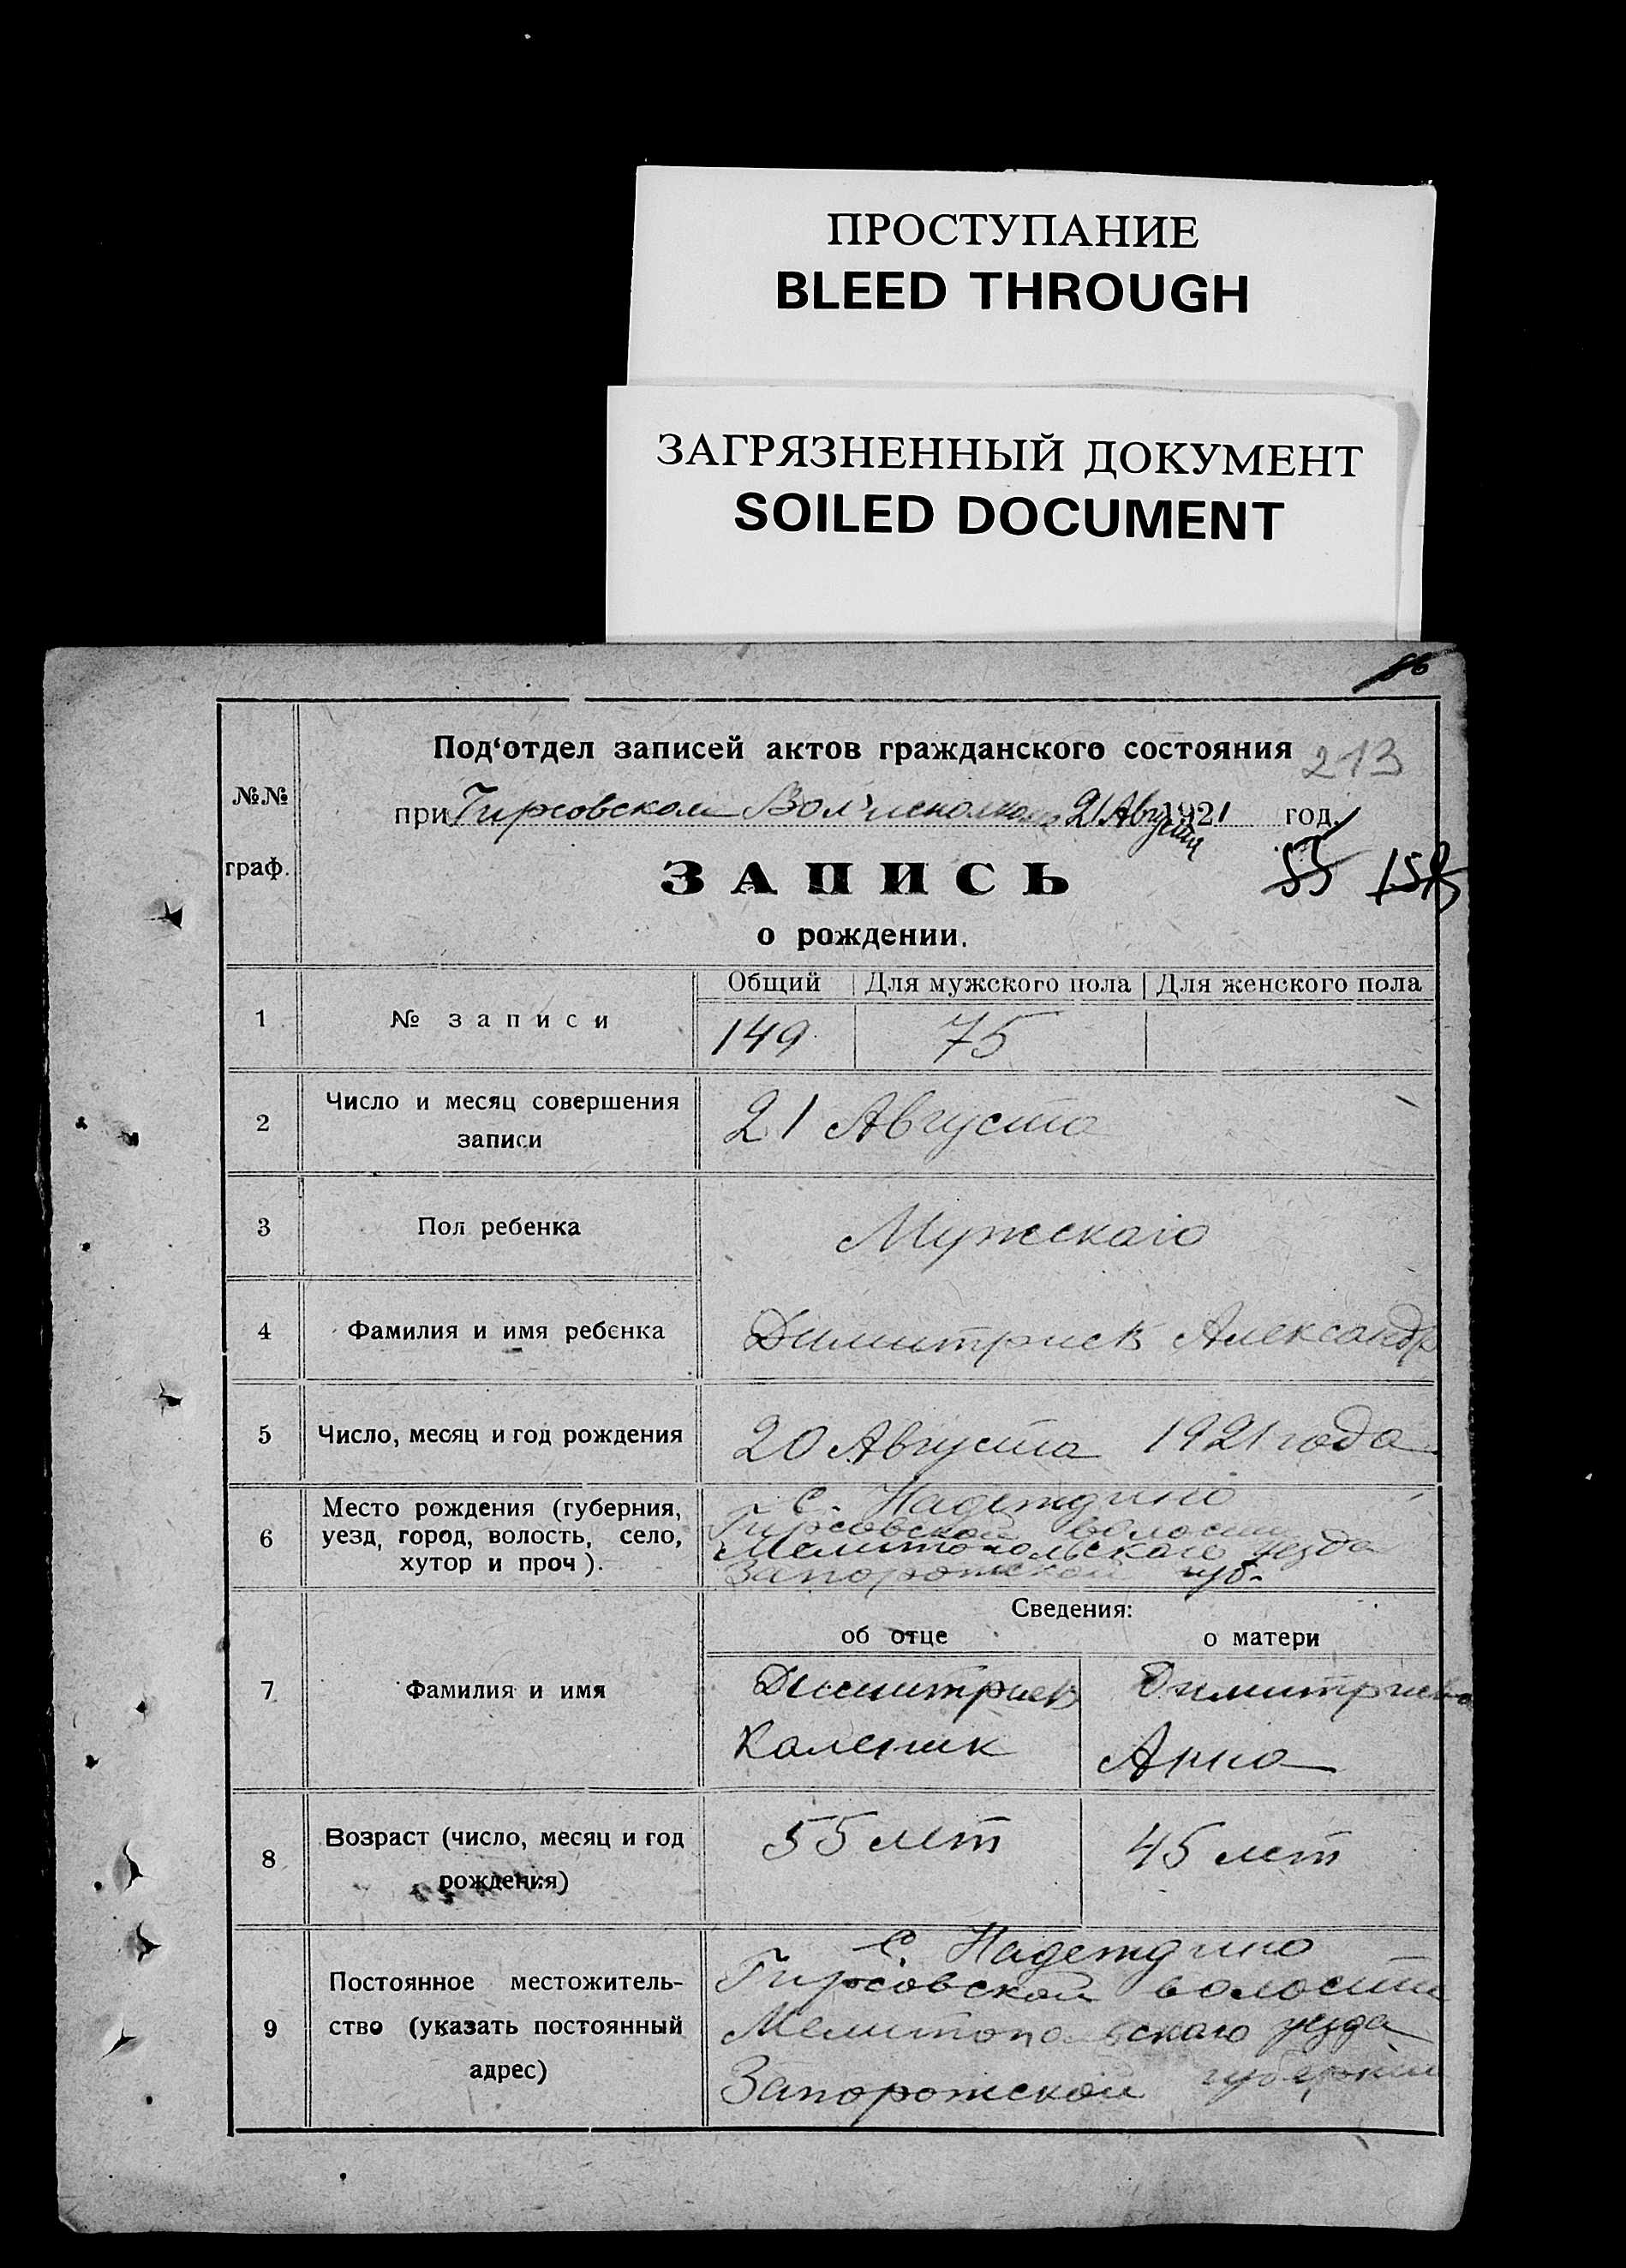 ПРОСТУПАНИЕ
BLEED THROUGH
ЗАГРЯЗНЕННЫЙ ДОКУМЕНТ
SOILED DOCUMENT
Под‘отдел записей актов гражданского состояния
213
при Гирсовском Вол'исполкоме 21 Августа 1921 год.
№№
граф.
55 158
ЗАПИСЬ
о рождении.
Общий Для мужского пола Для женского пола
1 № записи 149 75
2 Число и месяц совершения
записи
21 Августа
3 Пол ребенка Мужскаго
4 Фамилия и имя ребенка Димитриев Александр
5 Число, месяц и год рождения 20 Августа 1921 года
6 Место рождения (губерния,
уезд, город, волость, село,
хутор и проч).
С. Надеждино
Гирсовской волости
Мелитопольскаго уезда
Запорожской губ.
Сведения:
об отце о матери
7 Фамилия и имя
Димитриев Димитриева
Каленик Анна
8 Возраст (число, месяц и год
рождения)
55 лет 45 лет
9 Постоянное местожитель-
ство (указать постоянный
адрес)
С. Надеждино
Гирсовской волости
Мелитопольскаго уезда
Запорожской губернии